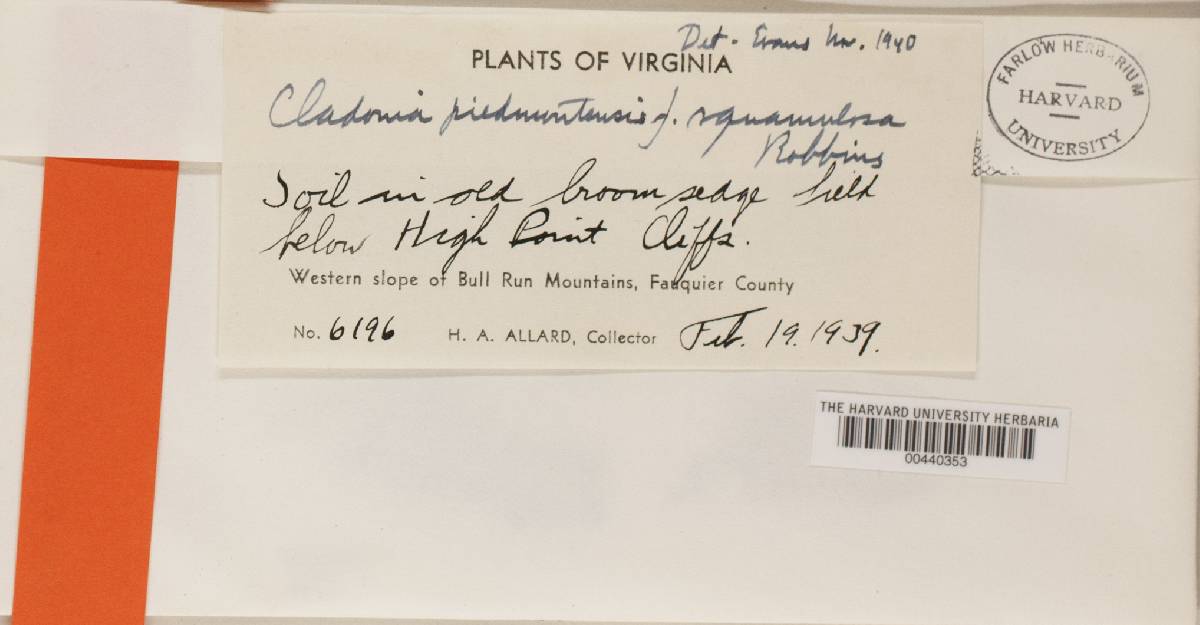 Det. Evans Nov. 1940
PLANTS OF VIRGINIA
Cladonia piedmontensis f. squamulosa
Robbins
Soil in old broom sedge field
below High Point Cliffs.
Western slope of Bull Run Mountains, Fauquier County
No. 6196 H. A. ALLARD, Collector Feb. 19. 1939.
FARLOW HERBARIUM
HARVARD
UNIVERSITY
THE HARVARD UNIVERSITY HERBARIA
00440353